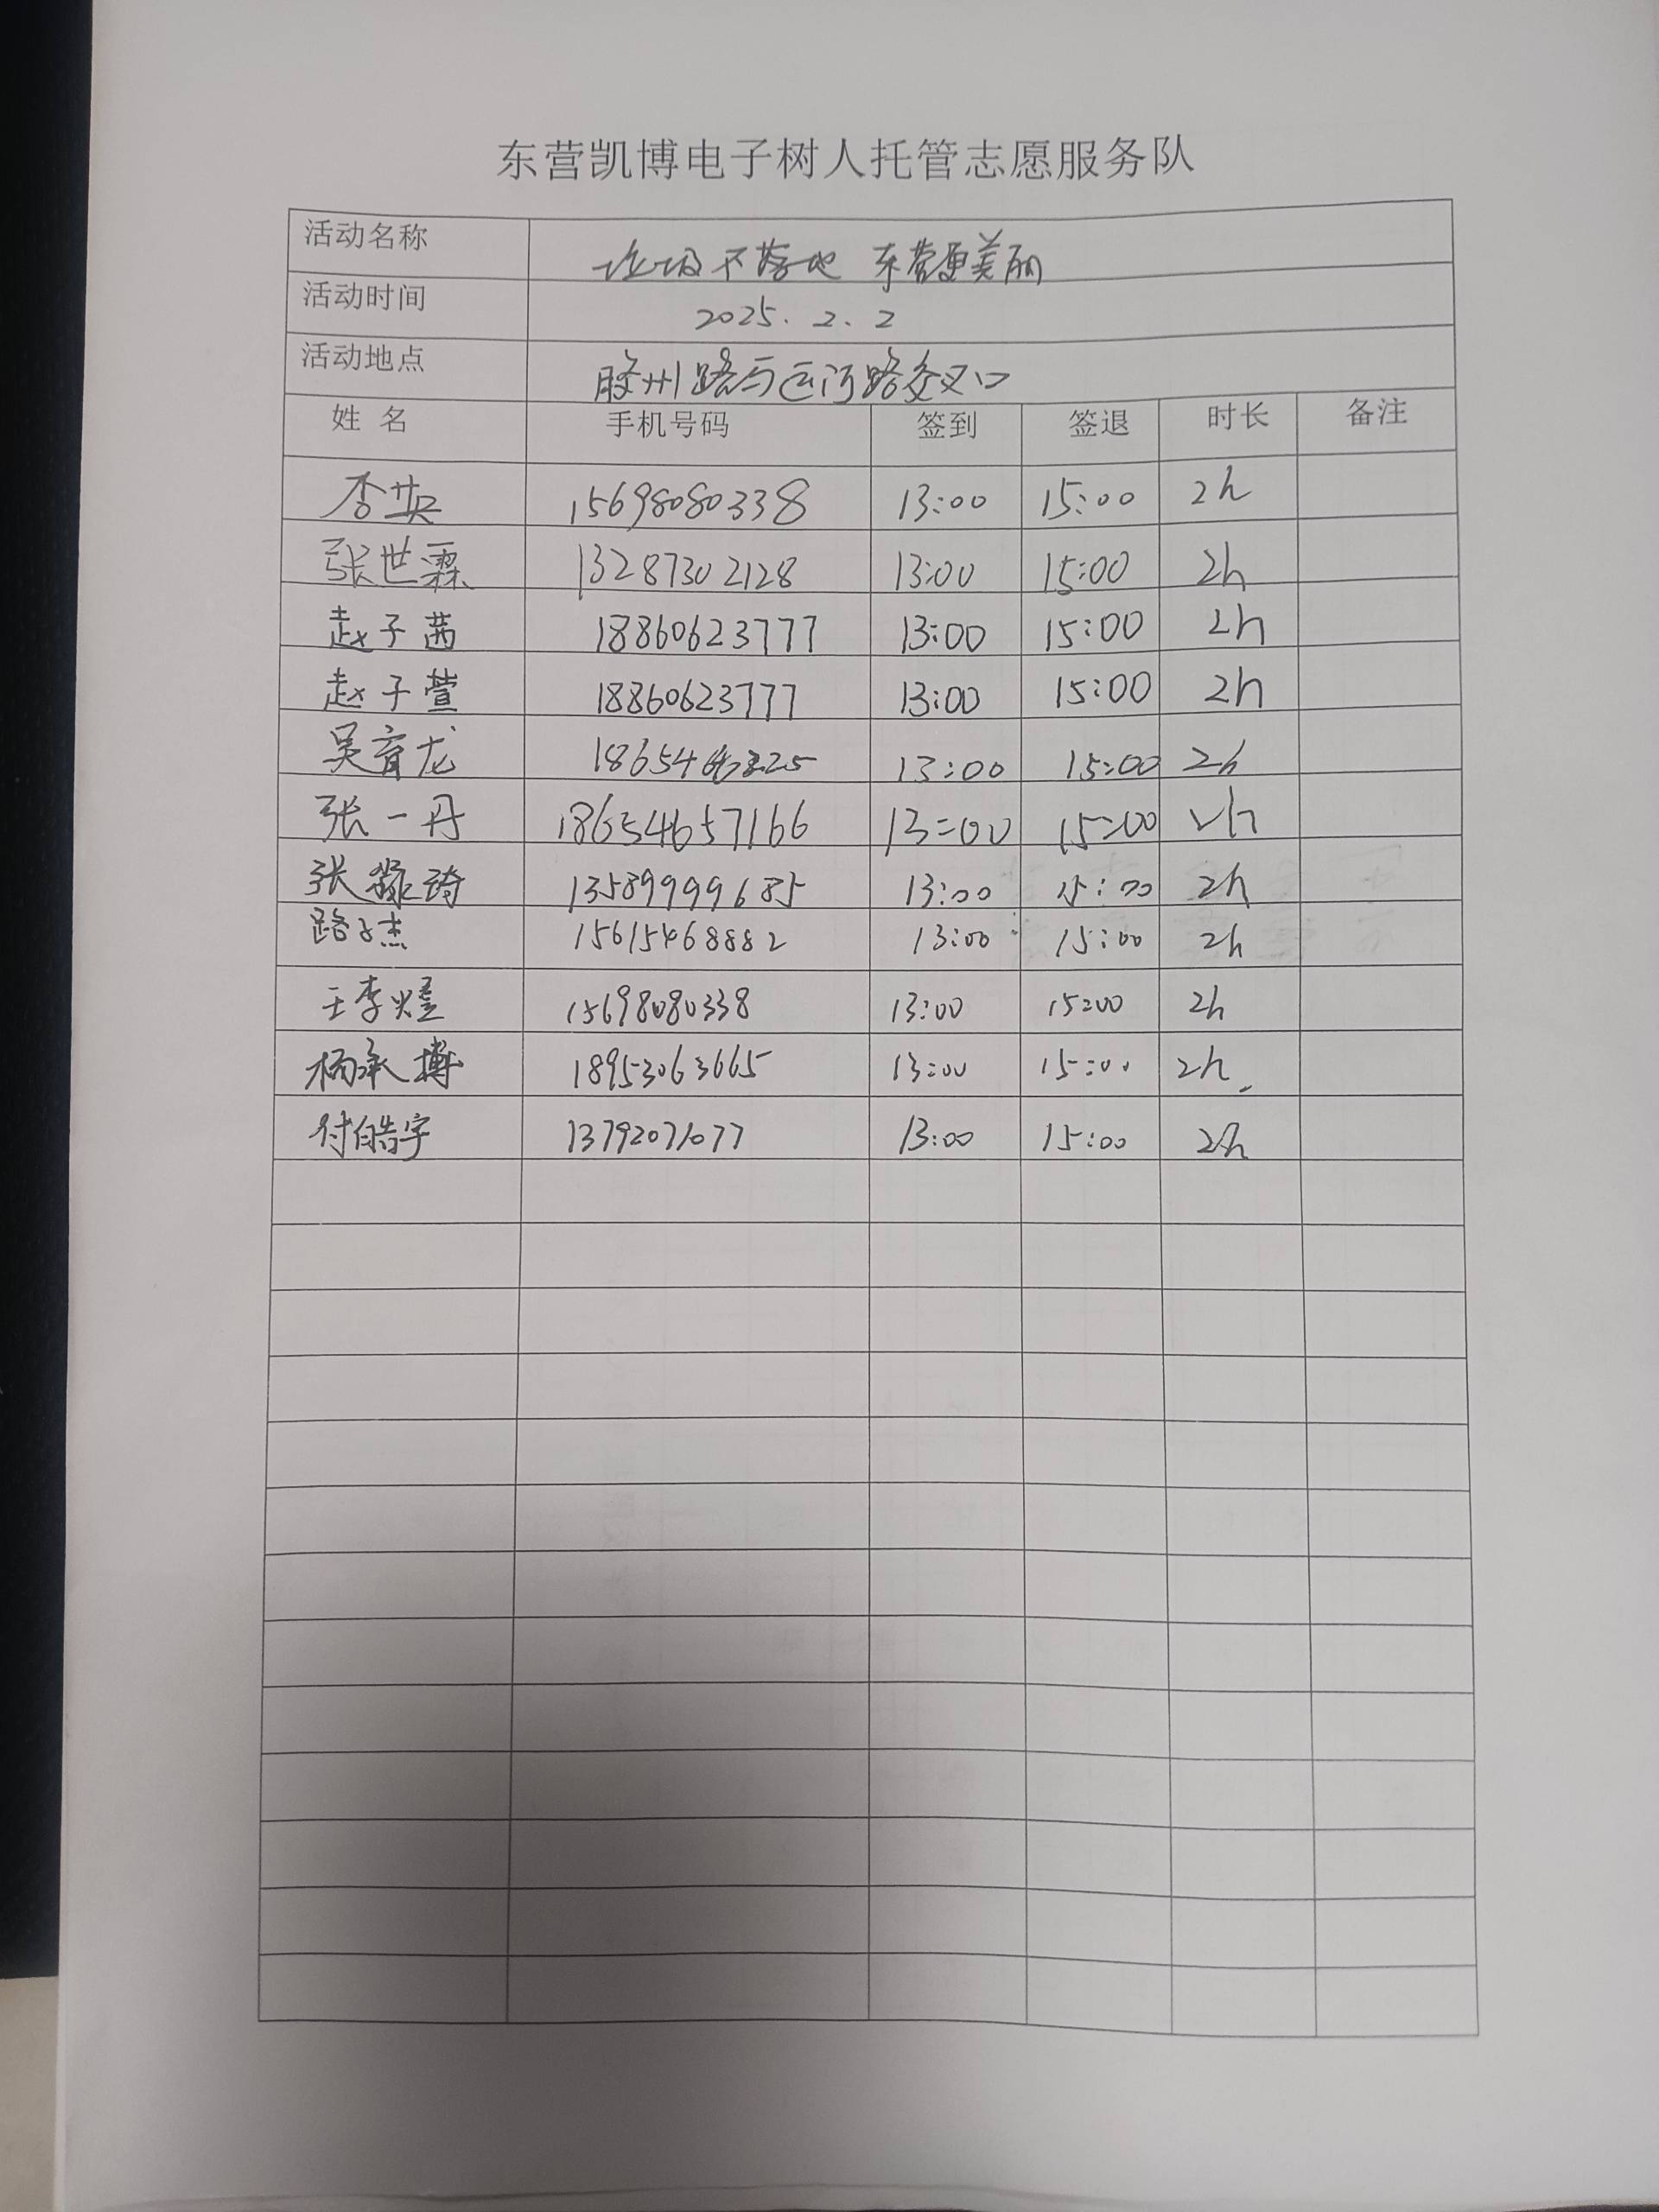 东营凯博电子树人托管志愿服务队
活动名称 垃圾不落地 东营更美丽
活动时间 2025.2.2
活动地点 胶州路与运河路交叉口
姓 名 手机号码 签到 签退 时长 备注
李英 15698080338 13:00 15:00 2h
张世霖 13287302128 13:00 15:00 2h
赵子茜 18860623777 13:00 15:00 2h
赵子萱 18860623777 13:00 15:00 2h
吴育龙 13:00 15:00 2h
张一丹 18654657166 13:00 15:00 2h
张 诗 13589999685 13:00 15:00 2h
路子杰 15615468882 13:00 15:00 2h
王李煊 15698080338 13:00 15:00 2h
杨承博 18953063665 13:00 15:00 2h
付皓宇 13792071077 13:00 15:00 2h